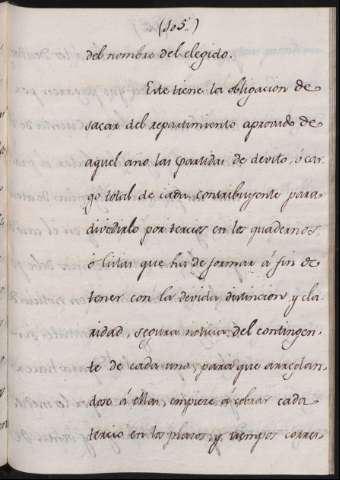 (105.)
del nombre del elegido.
Este tiene la obligacion de
sacar del repartimiento aprovado de
aquel año las partidas de devito, ó car-
go total de cada contribuyente para
dividirlo por tercios en los quadernos,
ó listas que ha de formar á fin de
tener con la devida distincion, y cla-
ridad, segura noticia del contingen-
te de cada uno, para que arreglan-
dose á ellas, empiece a cobrar cada
tercio en los plazos, y tiempos corres-